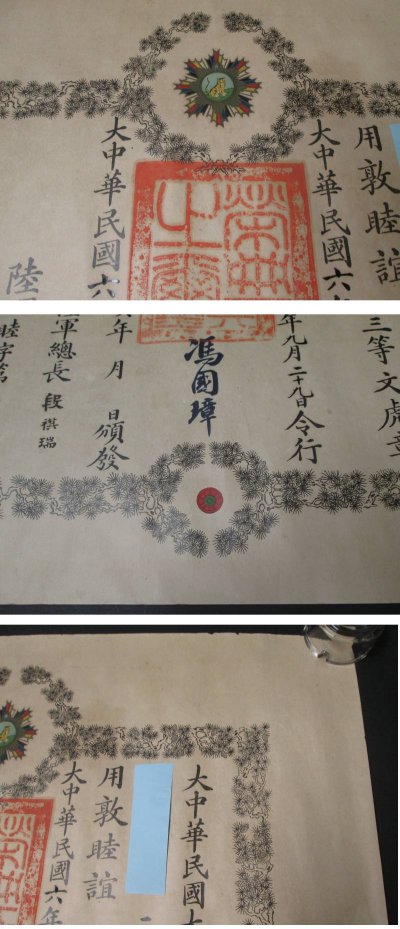 用敦睦誼
大中華民國六年
榮
之
大中華民國六
陸
三等文虎章
年九月二十 日令行
馮國璋
年 月 日頒發
軍總長 段祺瑞
睦字第
大中華民國大
用敦睦誼
大中華民國六年
榮